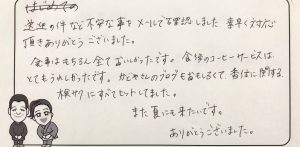 送迎の件など不安な事をメールで確認しました 素早く対応
頂きありがとうございました。
食事はもちろん全ておいしかったです。食後のコーヒーサービスは
とてもうれしかったです。 さんのブログもおもしろくて、
検索 にすべてヒットしてました。
また夏にも来たいです。
ありがとうございました。